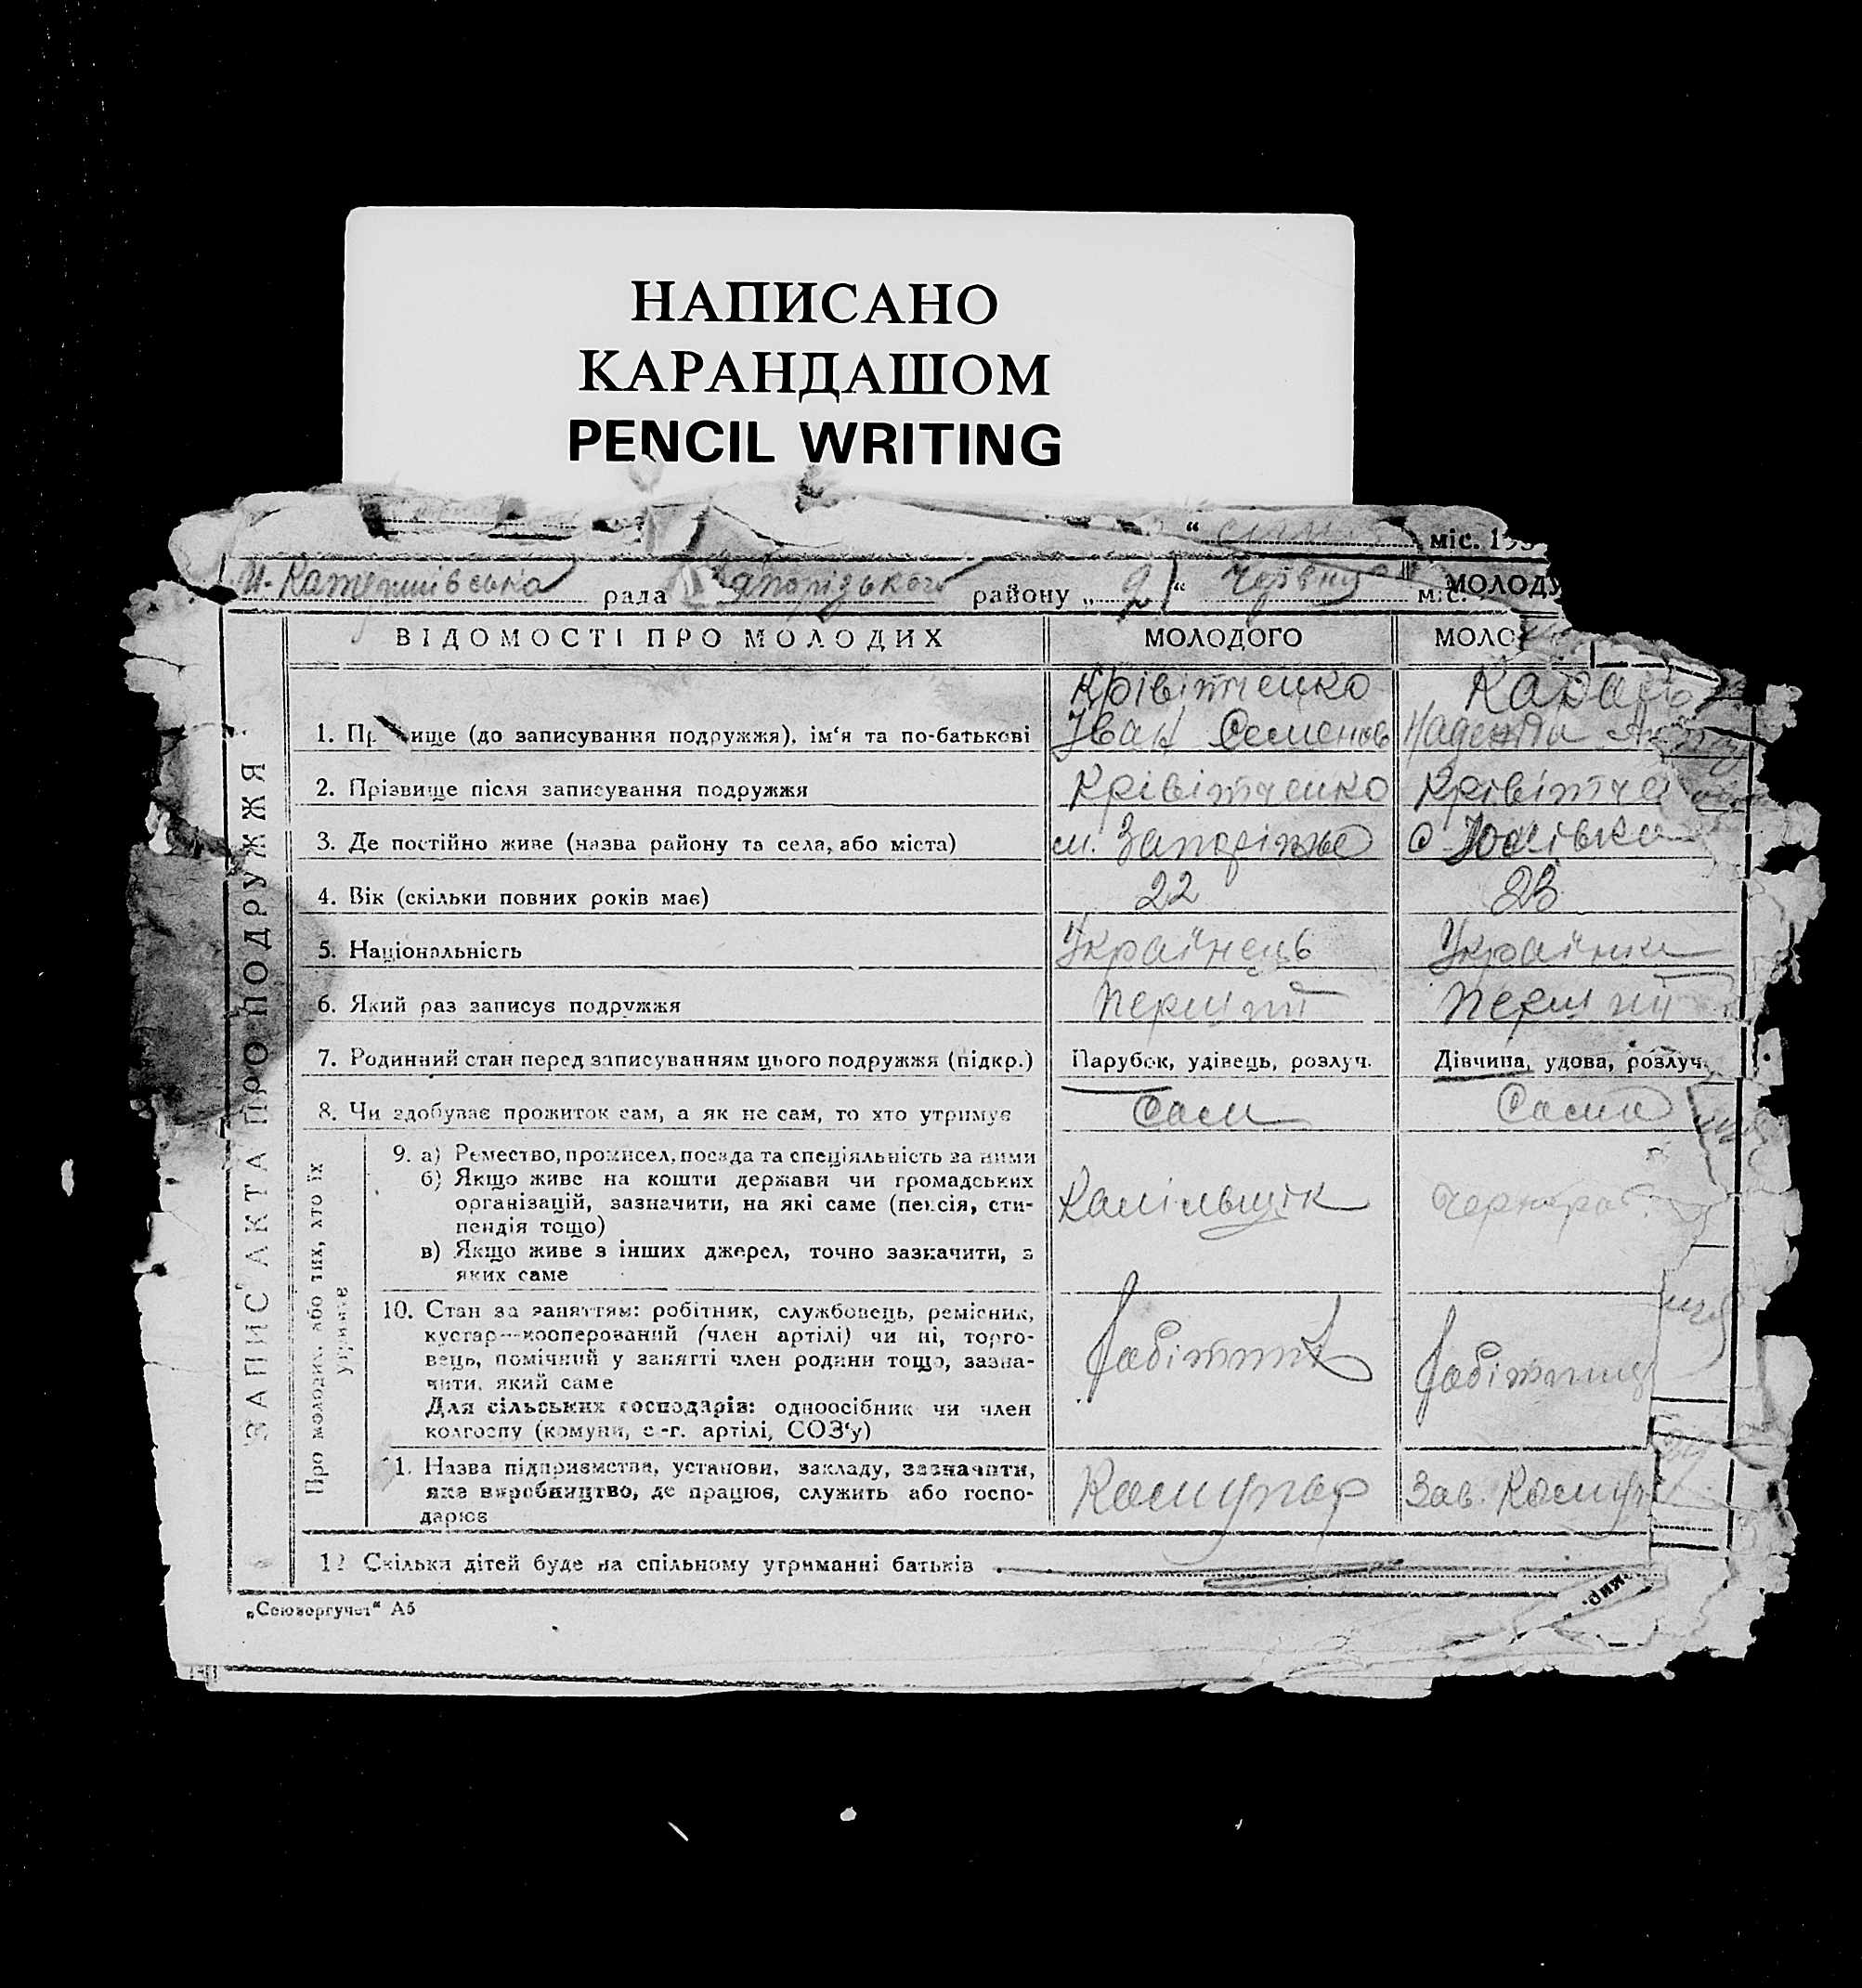 НАПИСАНО
КАРАНДАШОМ
PENCIL WRITING
“ міс. 193
рада Запорізького району „ 2 “ червня міс. МОЛОДУ
ВІДОМОСТІ ПРО МОЛОДИХ МОЛОДОГО МОЛО
Крівітченко
1. Пр ище (до записування подружжя), ім‘я та по-батькові Іван Семенов Надежда
2. Прізвище після записування подружжя Крівітченко Крівітче
3. Де постійно живе (назва району та села, або міста) м. Запоріжжє с.
4. Вік (скільки повних років має) 22 23
5. Національність Українець Українка
6. Який раз записує подружжя перший перший
7. Родинний стан перед записуванням цього подружжя (підкр.) Парубок, удівець, розлуч. Дівчина, удова, розлуч.
8. Чи здобуває прожиток сам, а як не сам, то хто утримує Сам Сама
ЗАПИС АКТА ПРО ПОДРУЖЖЯ
Про молодих, або тих, хто їх
утримує
9. а) Ремество, промисел, посада та спеціяльність за ними
б) Якщо живе на кошти держави чи громадських
організацій, зазначити, на які саме (пенсія, сти-
пендія тощо)
Камільщік Чернораб.
в) Якщо живе з інших джерел, точно зазначити, з
яких саме
10. Стан за заняттям: робітник, службовець, ремісник,
кустар—кооперований (член артілі) чи ні, торго-
вець, помічний у занятті член родини тощо, зазна-
чити, який саме
Робітник Робітниц
Для сільських господарів: одноосібник чи член
колгоспу (комуни, с.-г. артілі, СОЗ‘у)
11. Назва підприємства, установи, закладу, зазначити,
яке виробництво, де працює, служить або госпо-
дарює
Комунар Зав. Комун
12 Скільки дітей буде на спільному утриманні батьків
„Союзоргучет“ А5